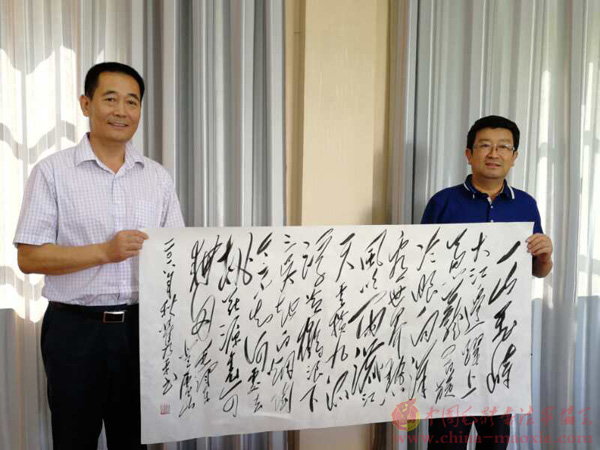 一山飞峙
大江边跃上
葱茏四百旋
冷眼向洋
看世界热
风吹雨洒江
天云横九派
浮黄鹤浪下
三吴起白烟陶
令不知何处去
桃花源里可
耕田毛泽东
登庐山